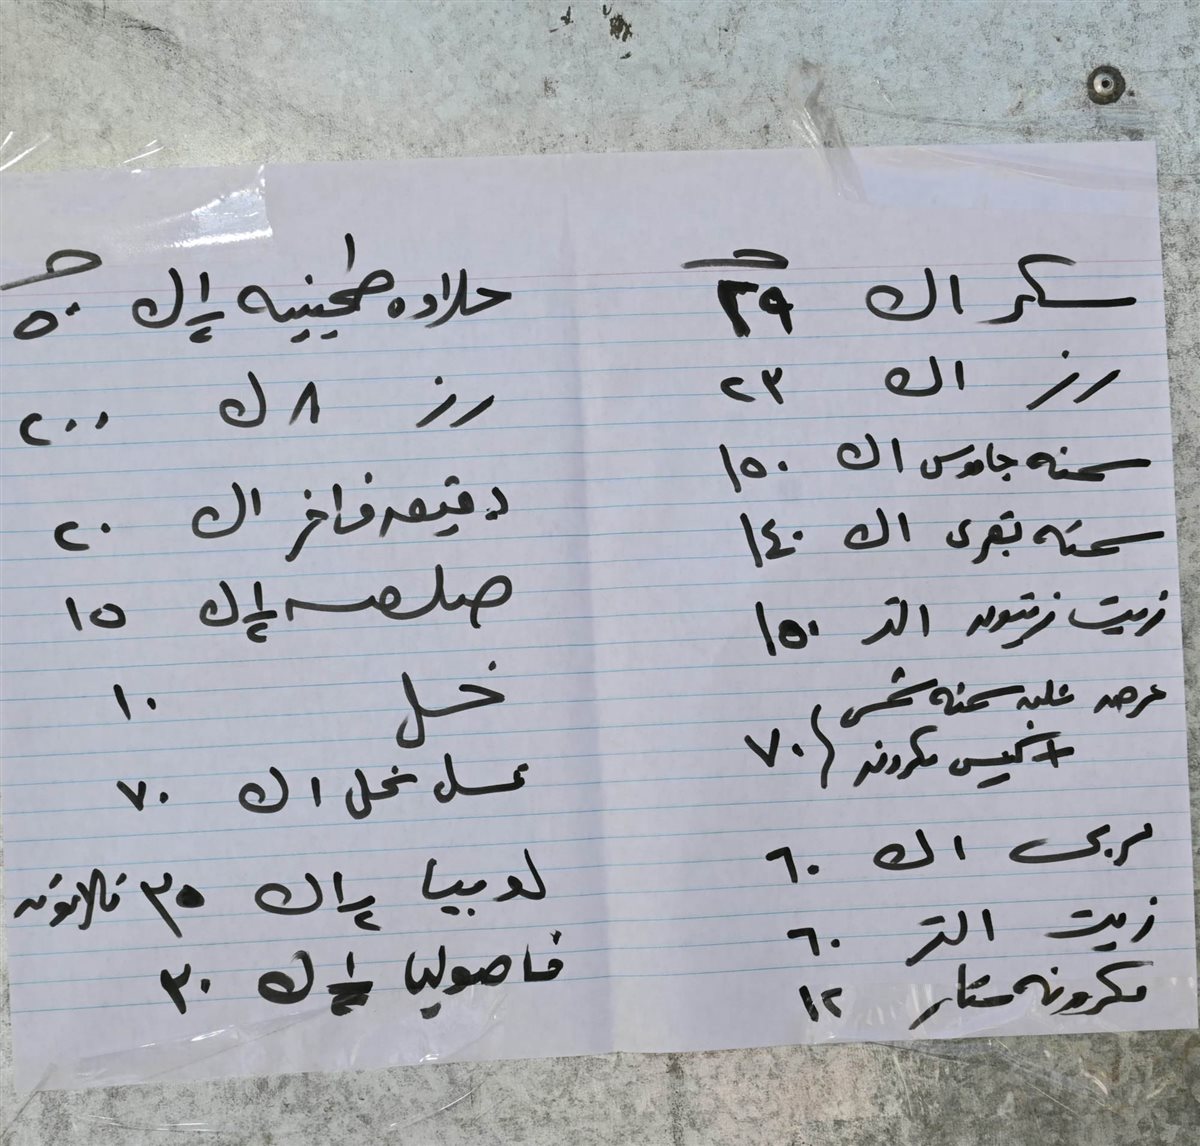 سكر ١ك ٢٩
رز ١ك ٢٣
سمنه جاموس ١ك ١٥٠
سمنه بقرى ١ك ١٤٠
زيت زيتون ١لتر ١٥٠
عرض علبه سمنه شمس
+ كيس مكرونه ٧٠
مربى ١ك ٦٠
زيت ١لتر ٦٠
مكرونه ستار ١٢
حلاوه طحينيه ١/٢ك ٥٠
رز ٨ك ٢٠٠
دقيق فاخر ١ك ٢٠
صلصه ١/٢ك ١٥
خل ١٠
عسل نحل ١ك ٧٠
لوبيا ١/٢ك ٣٥
فاصوليا ١/٢ك ٣٠